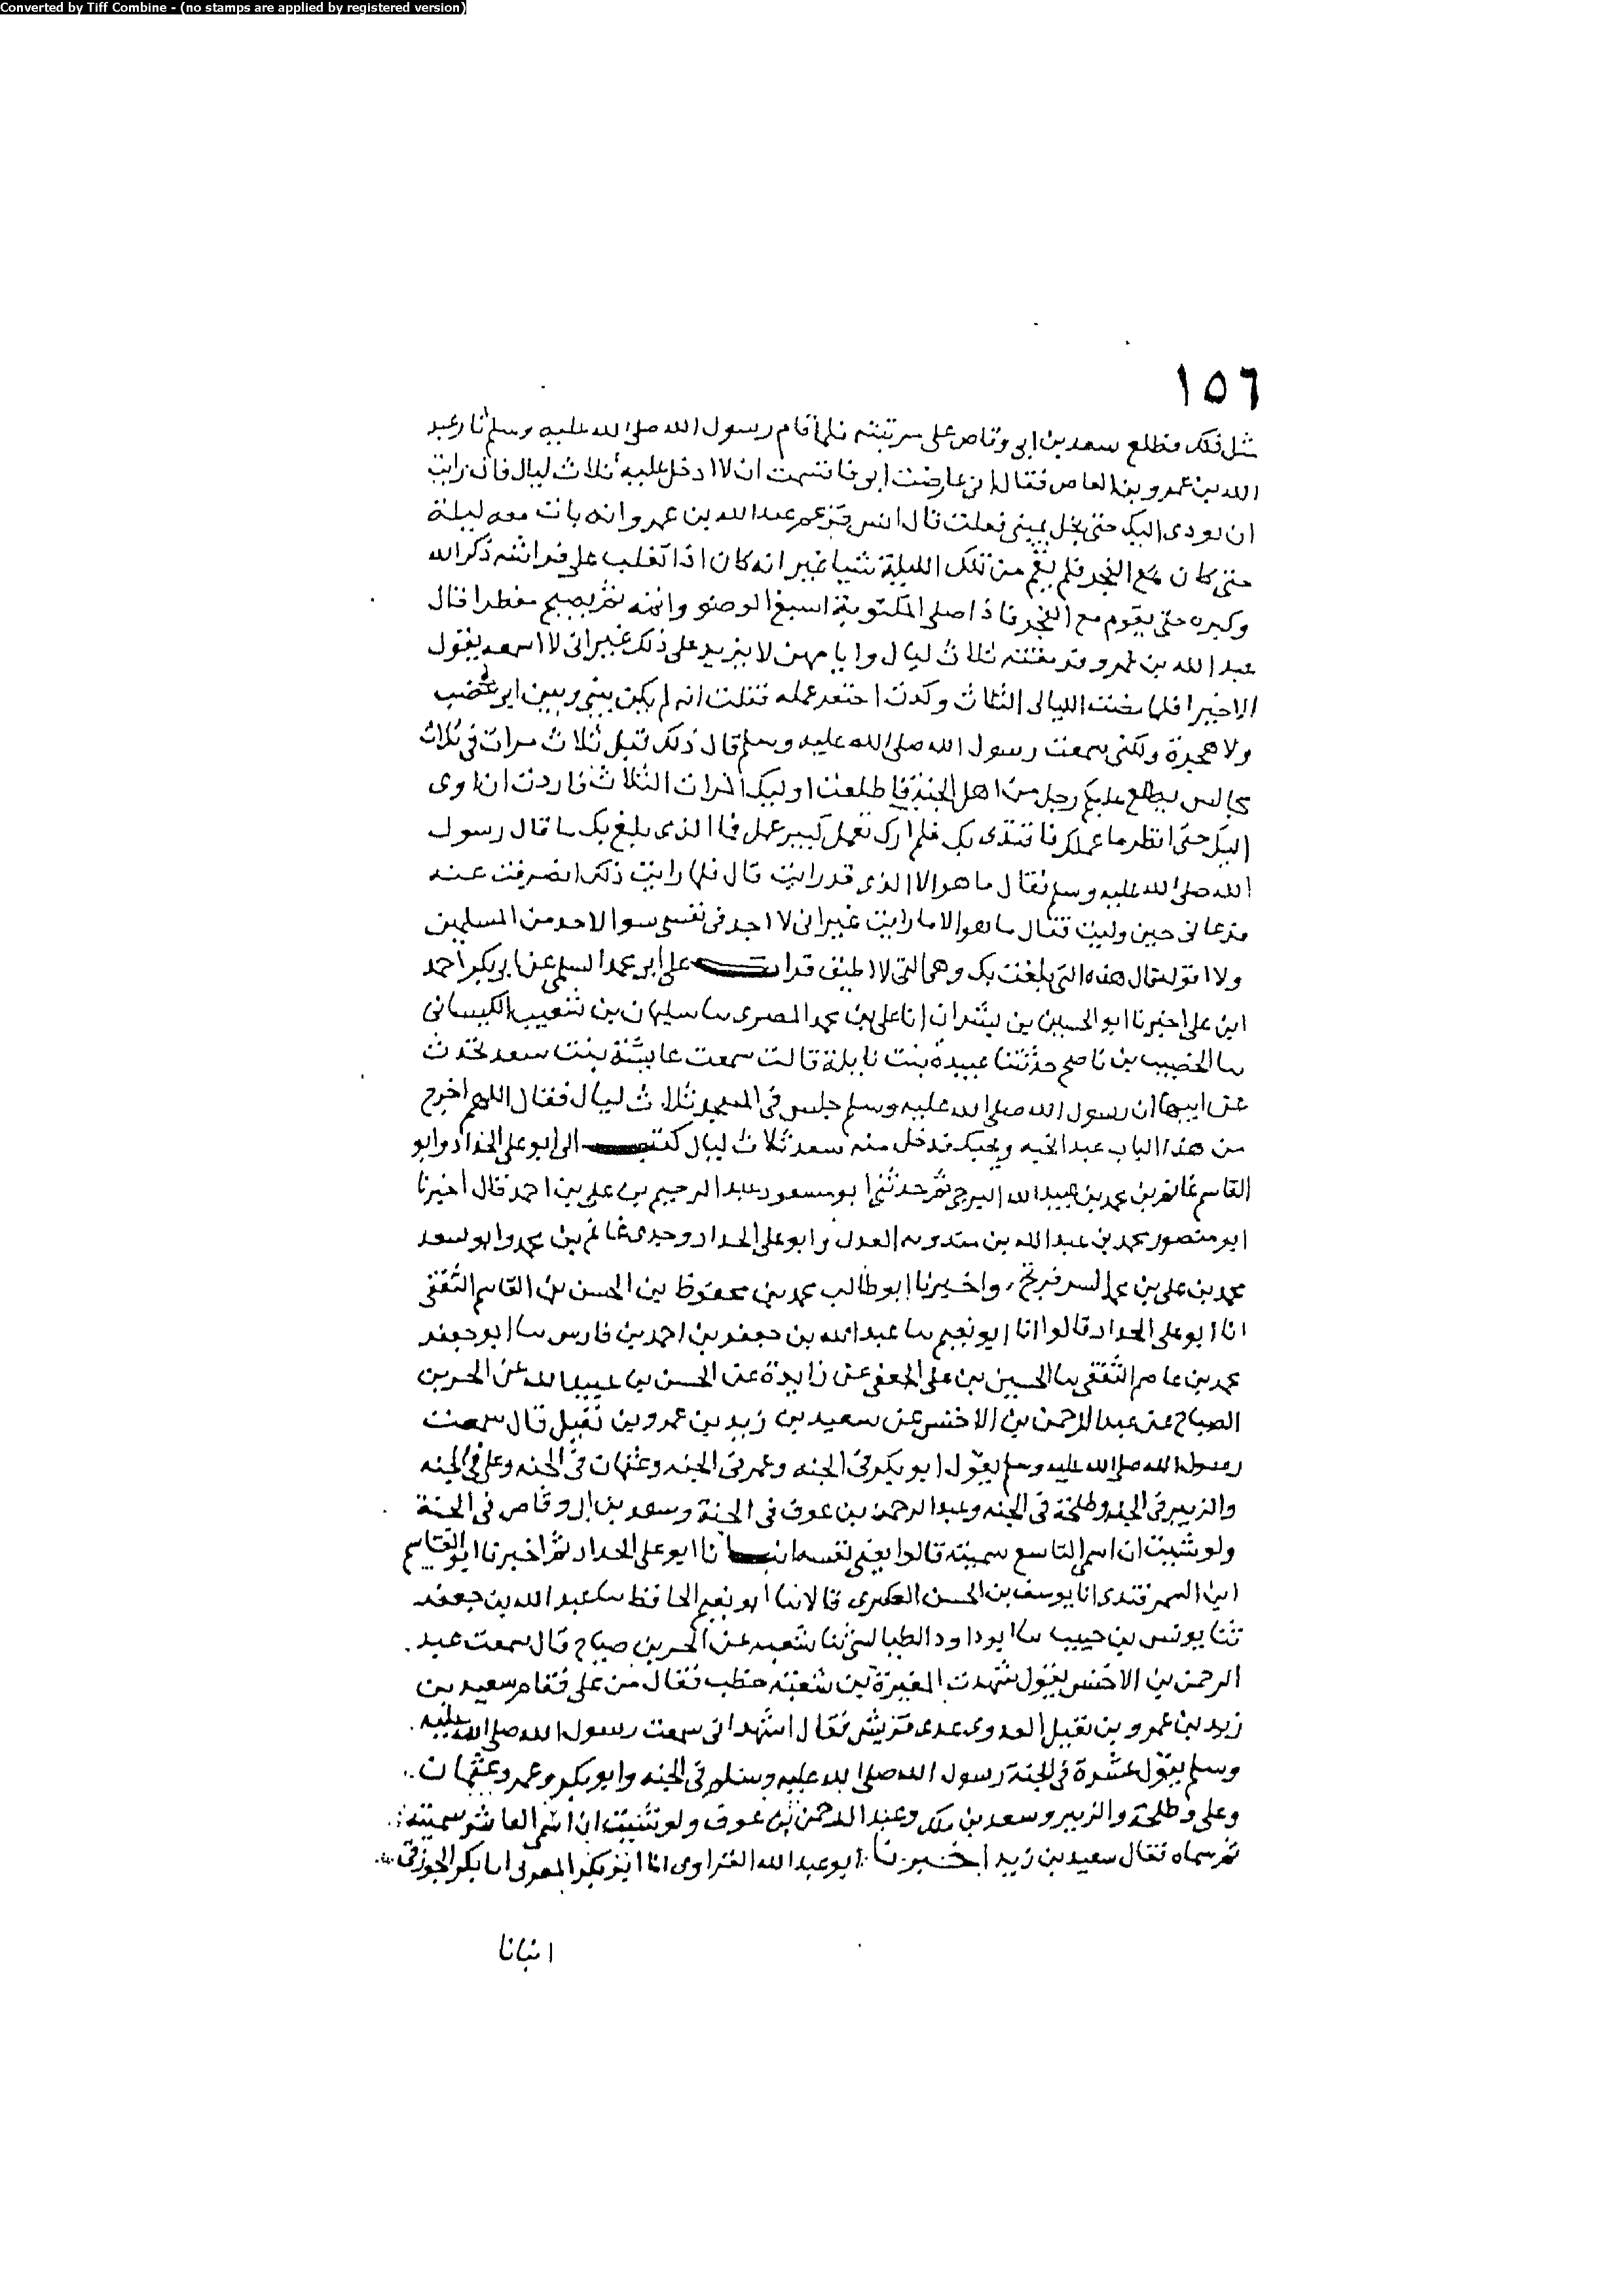 Converted by Tiff Combine - (no stamps are applied by registered version)
١٥٦
مثل ذلك فطلع سعد بن ابى وقاص على مرتبته فلما قام رسول الله صلى الله عليه وسلم ثار عبد
الله بن عمرو بن العاص فقال انى عاضبت ابى فاقسمت ان لا ادخل عليه ثلاث ليال فان رايت
ان تودى اليك حتى تحل يمينى فعلت قال انس فزعم عبد الله بن عمرو انه بات معه ليلة
حتى كان مع الفجر فلم يقم من تلك الليلة شيا غير انه كان اذا تقلب على فراشه ذكر الله
وكبره حتى يقوم مع الفجر فاذا صلى المكتوبة اسبغ الوضو واتمه ثم يصبح مفطرا قال
عبد الله بن عمرو فرمقته ثلاث ليال وايامهن لا يزيد على ذلك غير انى لا اسمعه يقول
الا خيرا فلما مضت الليالى الثلاث وكدت احتقر عمله فقلت انه لم يكن بينى وبين ابى غضب
ولا هجرة ولكنى سمعت رسول الله صلى الله عليه وسلم قال ذلك قبل ثلاث مرات فى ثلاث
مجالس يطلع عليكم رجل من اهل الجنة فاطلعت اوليك المرات الثلاث فاردت ان اوى
اليك حتى انظر ما عملك فاقتدى بك فلم ارك تعمل كبير عمل فما الذى بلغ بك ما قال رسول
الله صلى الله عليه وسلم فقال ما هو الا الذى قد رايت قال فلما رايت ذلك انصرفت عنه
فدعانى حين وليت فقال ما هو الا ما رايت غير انى لا اجد فى نفسى سوا لاحد من المسلمين
ولا اقوله قال هذه التى بلغت بك وهى التى لا اطيق قرات على ابى محمد السلمى عن ابى بكر احمد
ابن على اخبرنا ابو الحسين بن بشران انا على بن محمد المصرى سا سليمان بن شعيب الكيسانى
سا الخصيب بن ناصح حدثتنا عبيدة بنت نابلة قالت سمعت عايشة بنت سعد تحدث
عن ابيها ان رسول الله صلى الله عليه وسلم جلس فى المسجد ثلاث ليال فقال اللهم اخرج
من هذا الباب عبدا تحبه ويحبك فدخل منه سعد ثلاث ليال كتب الى ابو على الحداد وابو
القاسم غانم بن محمد بن عبيد الله البرجى ثم حدثنى ابو مسعود عبد الرحيم بن على بن احمد قال اخبرنا
ابو منصور محمد بن عبد الله بن مندويه العدل وابو على الحداد وجدى غانم بن محمد وابو سعد
محمد بن على بن محمد السرفرتج واخبرنا ابو طالب محمد بن محفوظ بن الحسن بن القاسم الثقفى
انا ابو على الحداد قالوا انا ابو نعيم سا عبد الله بن جعفر بن احمد بن فارس سا ابو جعفر
محمد بن عاصم الثقفى سا الحسين بن على الجعفى عن زايدة عن الحسن بن عبيد الله عن الحر بن
الصباح عن عبد الرحمن بن الاخنس عن سعيد بن زيد بن عمرو بن نفيل قال سمعت
رسول الله صلى الله عليه وسلم يقول ابو بكر فى الجنه وعمر فى الجنه وعثمان فى الجنه وعلى فى الجنه
والزبير فى الجنه وطلحة فى الجنه وعبد الرحمن بن عوف فى الجنة وسعد بن ابى وقاص فى الجنة
ولو شيت ان اسمى التاسع سميته قالوا يعنى نفسه انبانا ابو على الحداد ثم اخبرنا ابو القاسم
ابن السمرقندى انا يوسف بن الحسن العكبرى قالا سا ابو نعيم الحافظ سا عبد الله بن جعفر
ثنا يونس بن حبيب سا ابو داود الطيالسى ثنا شعبه عن الحر بن صباح قال سمعت عبد
الرحمن بن الاخنس يقول شهدت المغيرة بن شعبه خطب فقال من على فقام سعيد بن
زيد بن عمرو بن نفيل العدوى عدى قريش فقال اشهد انى سمعت رسول الله صلى الله عليه
وسلم يقول عشرة فى الجنة رسول الله صلى الله عليه وسلم فى الجنه وابو بكر وعمر وعثمان
وعلى وطلحة والزبير وسعد بن ملك وعبد الرحمن بن عوف ولو شيت ان اسمى العاشر سميته
ثم سماه فقال سعيد بن زيد اخبرنا ابو عبد الله الفراوى انا ابو بكر المغربى انا بكر الجوزقى
انبانا